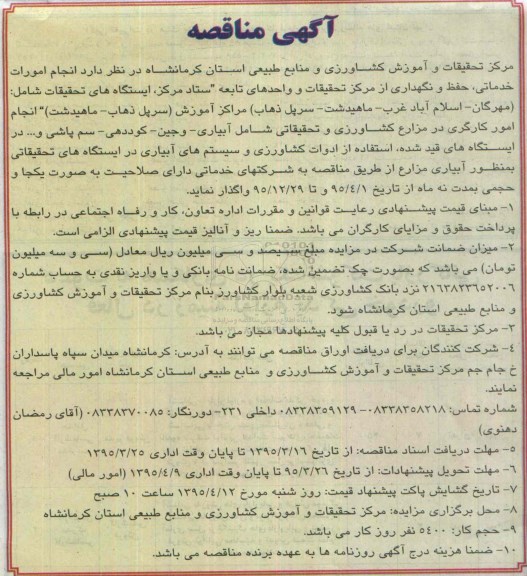 آگهی مناقصه
مرکز تحقیقات و آموزش کشاورزی و منابع طبیعی استان کرمانشاه در نظر دارد انجام امورات
خدماتی، حفظ و نگهداری از مرکز تحقیقات و واحدهای تابعه "ستاد مرکز، ایستگاه های تحقیقات شامل:
(مهرگان- اسلام آباد غرب- ماهیدشت- سرپل ذهاب) مراکز آموزش (سرپل ذهاب- ماهیدشت)" انجام
امور کارگری در مزارع کشاورزی و تحقیقاتی شامل آبیاری- وجین- کوددهی- سم پاشی و... در
ایستگاه های قید شده، استفاده از ادوات کشاورزی و سیستم های آبیاری در ایستگاه های تحقیقاتی
بمنظور آبیاری مزارع از طریق مناقصه به شرکتهای خدماتی دارای صلاحیت به صورت یکجا و
حجمی بمدت نه ماه از تاریخ ۹۵/۴/۱ و تا ۹۵/۱۲/۲۹ واگذار نماید.
۱- مبنای قیمت پیشنهادی رعایت قوانین و مقررات اداره تعاون، کار و رفاه اجتماعی در رابطه با
پرداخت حقوق و مزایای کارگران می باشد. ضمنا ریز و آنالیز قیمت پیشنهادی الزامی است.
۲- میزان ضمانت شرکت در مزایده مبلغ سیصد و سی میلیون ریال معادل (سی و سه میلیون
تومان) می باشد که بصورت چک تضمین شده، ضمانت نامه بانکی و یا واریز نقدی به حساب شماره
۲۱۶۳۸۲۳۶۵۲۰۰۶ نزد بانک کشاورزی شعبه بلوار کشاورز بنام مرکز تحقیقات و آموزش کشاورزی
و منابع طبیعی استان کرمانشاه شود.
۳- مرکز تحقیقات در رد یا قبول کلیه پیشنهادها مجاز می باشد.
۴- شرکت کنندگان برای دریافت اوراق مناقصه می توانند به آدرس: کرمانشاه میدان سپاه پاسداران
خ جام جم مرکز تحقیقات و آموزش کشاورزی و منابع طبیعی استان کرمانشاه امور مالی مراجعه
نمایند.
شماره تماس: ۰۸۳۳۸۳۵۸۲۱۸- ۰۸۳۳۸۳۵۹۱۲۹ داخلی ۲۳۱- دورنگار: ۰۸۳۳۸۳۷۰۰۸۵ (آقای رمضان
دهنوی)
۵- مهلت دریافت اسناد مناقصه: از تاریخ ۱۳۹۵/۳/۱۶ تا پایان وقت اداری ۱۳۹۵/۳/۲۵
۶- مهلت تحویل پیشنهادات: از تاریخ ۹۵/۳/۲۶ تا پایان وقت اداری ۱۳۹۵/۴/۹ (امور مالی)
۷- تاریخ گشایش پاکت پیشنهاد قیمت: روز شنبه مورخ ۱۳۹۵/۴/۱۲ ساعت ۱۰ صبح
۸- محل برگزاری مزایده: مرکز تحقیقات و آموزش کشاورزی و منابع طبیعی استان کرمانشاه
۹- حجم کار: ۵۴۰۰ نفر روز کار می باشد.
۱۰- ضمنا هزینه درج آگهی روزنامه ها به عهده برنده مناقصه می باشد.